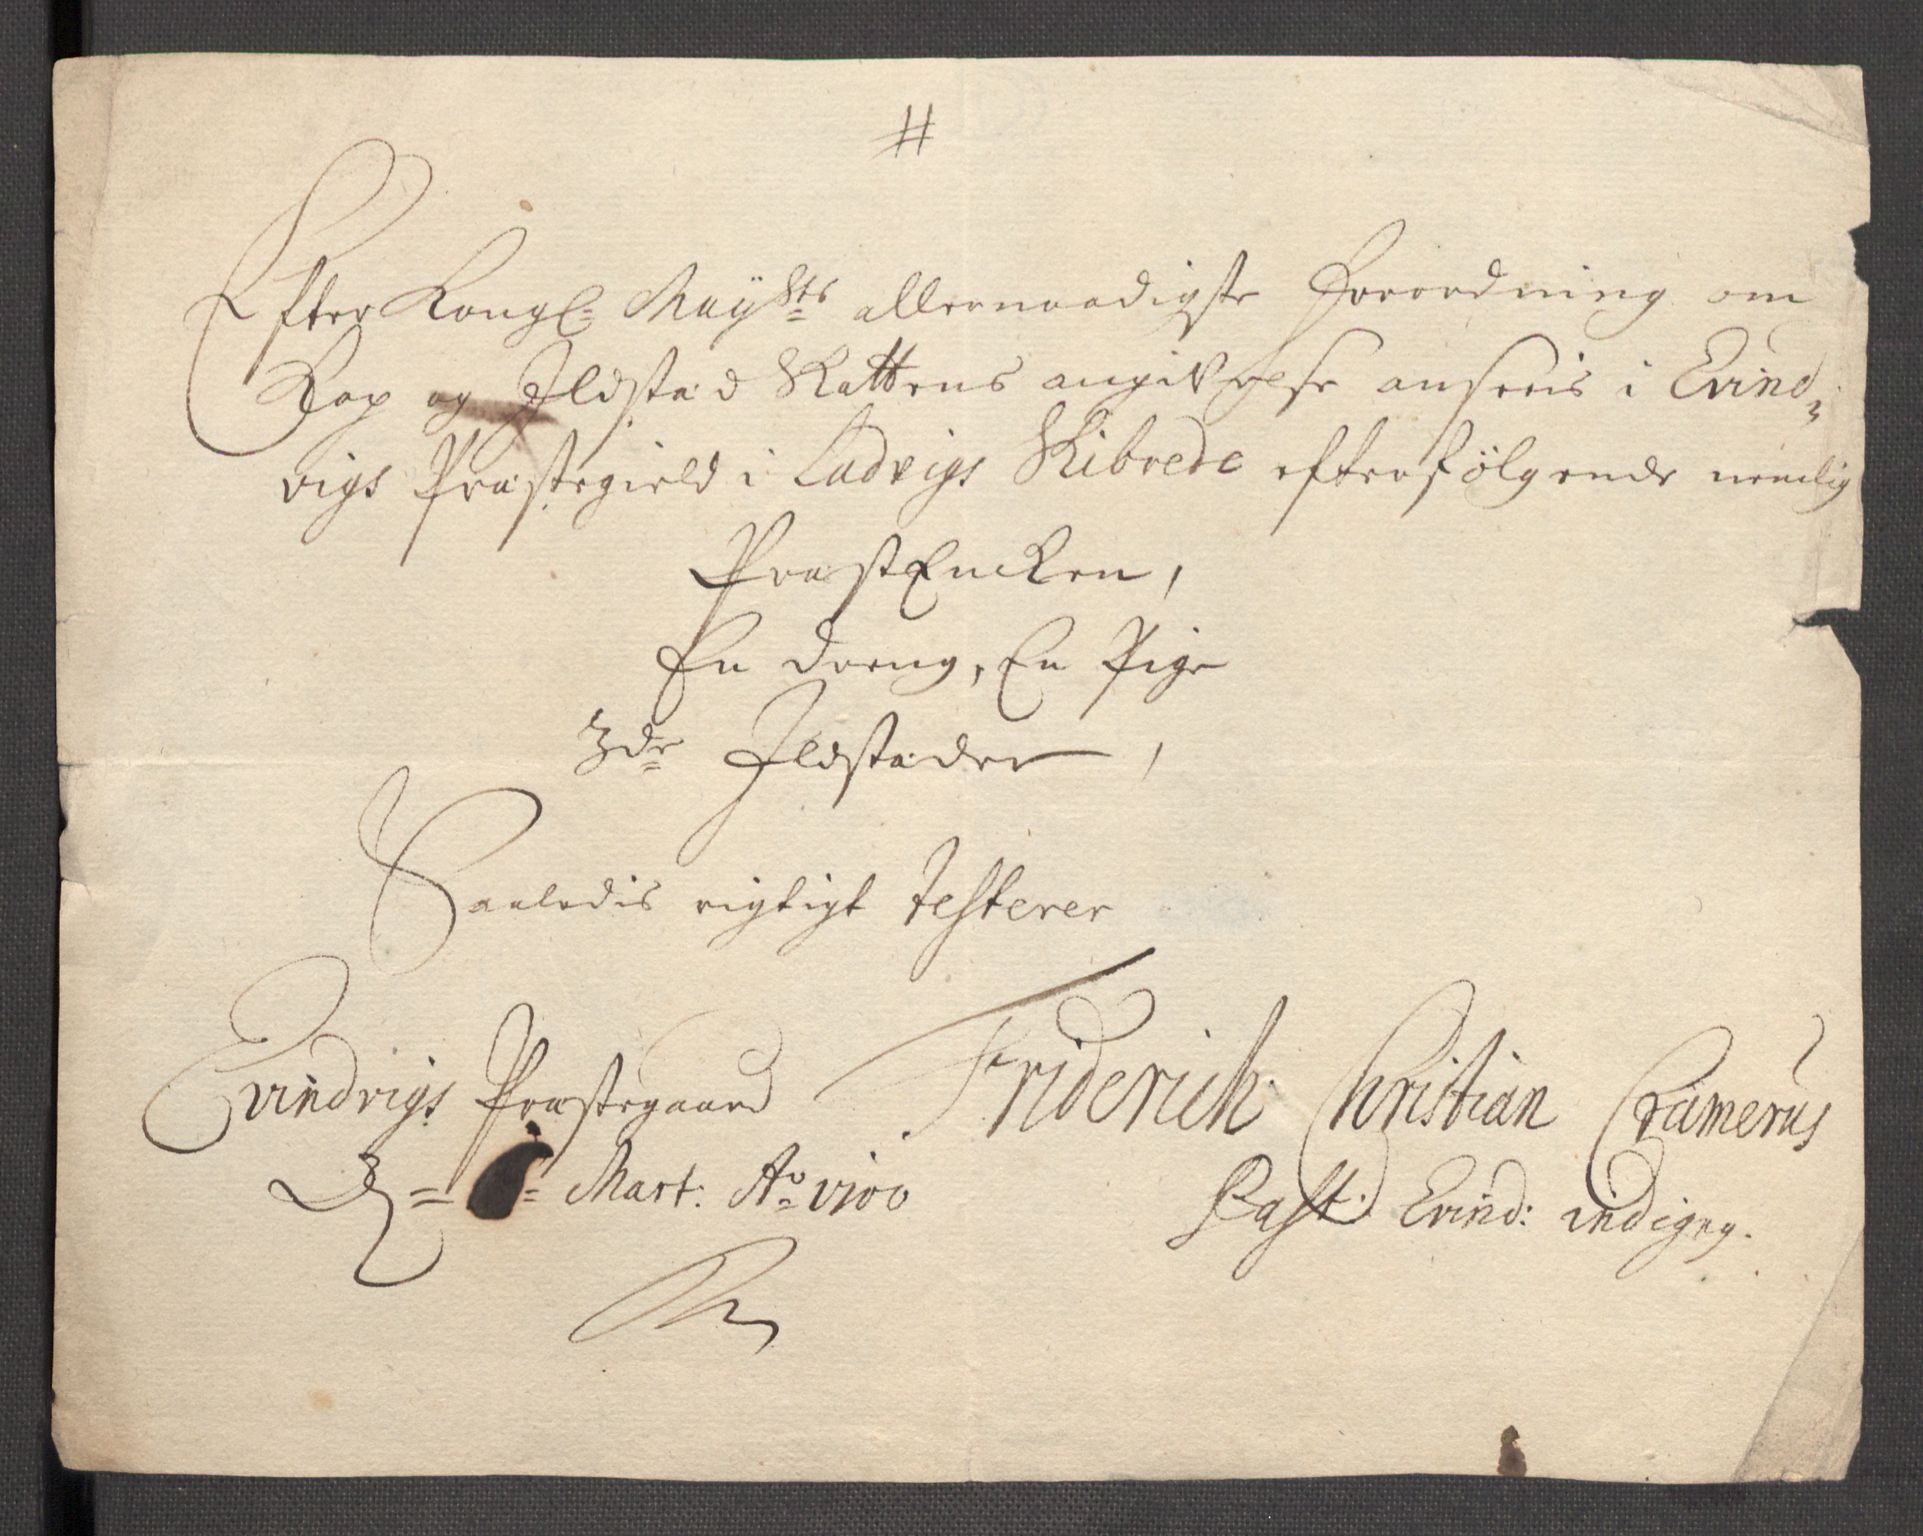 #
Efter Kongl= Maÿsts allernaadigste Forordning om
Kop og Ildstæd Skattens angivelse ansees i Evind=
vigs Præstegield i Ladvigs Skibrede efterfølgende nemlig
PræstEncken,
En dreng, En Pige
3de Ildstæder,
Saaledis rigtigt testerer
Evindvigs Præstegaard Friderich Christian Cramerus
D= = Mart: Ao 1700 Past: Evind: indigng.